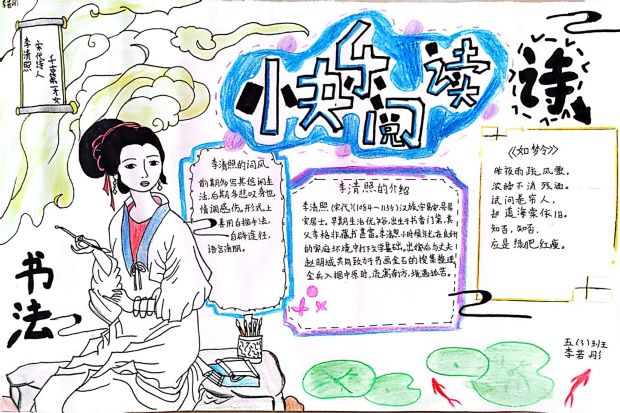 李若彤
千古第一才女
宋代诗人
李清照
小快乐阅读
诗
书法
李清照的词风
前期多写其悠闲生
活,后期多悲叹身世
情调感伤。形式上
善用白描手法,
自辟途径,
语言清丽。
李清照的介绍
李清照(宋代)(1084~1155)汉族,字易安,号易
安居士。早期生活优裕,出生于书香门第,其
父李格非藏书甚富。李清照小时候就在良好
的家庭环境中打下文学基础。出嫁后与丈夫
赵明诚共同致力于书画金石的搜集整理
金兵入据中原时,流寓南方,境遇孤苦。
《如梦令》
昨夜雨疏风骤,
浓睡不消残酒。
试问卷帘人,
却道海棠依旧。
知否,知否
应是绿肥红瘦。
五(3)班
李若彤